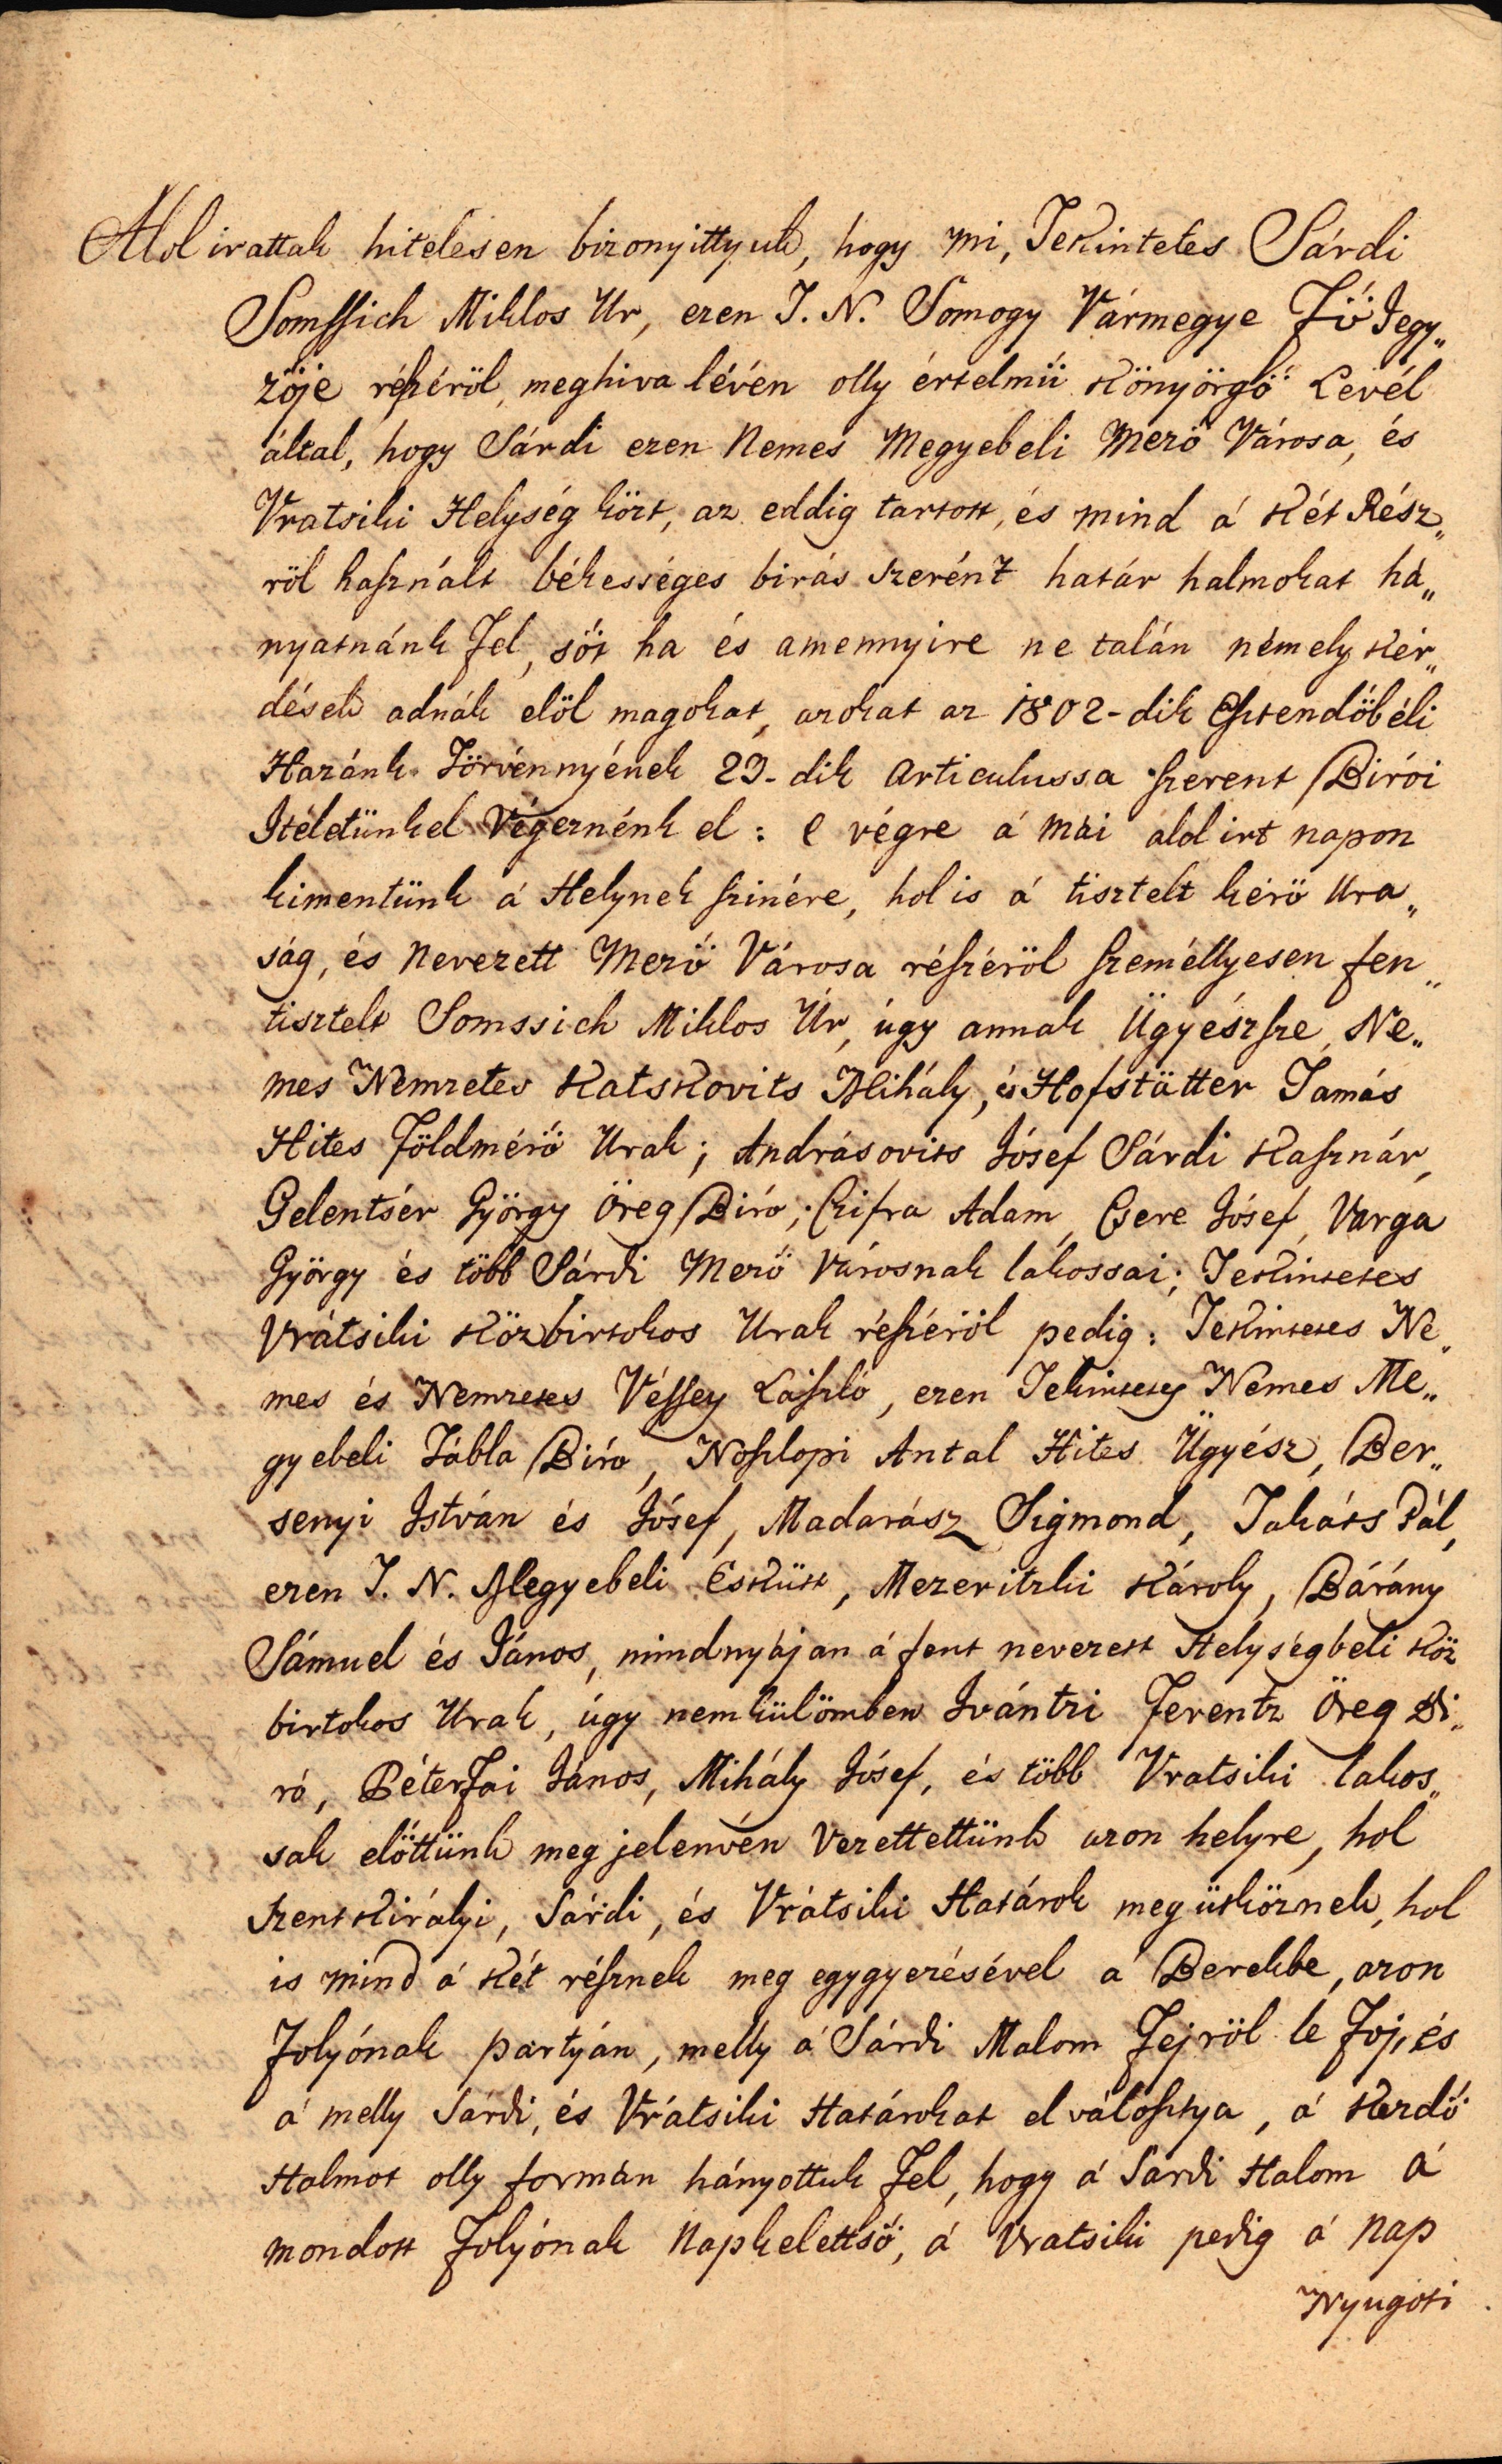 Alol irattak hitelesen bizonyittyuk, hogy mi, Tekintetes Sárdi
Somssich Miklos Ur, ezen T. N. Somogy Vármegye Fő Jegy„
zöje részéröl, meghiva lévén olly értelmü Könyörgő Levél
által, hogy Sárdi ezen Nemes Megyebeli Mező Városa, és
Vratsiki Helység közt, az eddig tartott, és mind á Két Rész„
röl használt békességes birás szerént határ halmokat há„
nyatnánk fel, söt ha és amennyire ne talán némely Kér„
dések adnák elöl magokat, azokat az 1802-dik Esztendöbéli
Hazánk Törvénnyének 23-dik Articulussa szerent Birói
Itéletünkel Végeznénk el: e végre á mái alol irt napon
kimentünk á Helynek szinére, hol is á tisztelt kérö Ura„
ság, és Nevezett Mező Városa részéröl személlyesen fen„
tisztelt Somssich Miklos Úr, úgy annak Ügyészsze, Ne„
mes Nemzetes Katskovits Mihály, és Hofstätter Tamás
Hites Földmérő Urak; Andrásovits Jósef Sárdi Kasznár,
Gelentsér György Öreg Biró; Czifra Adam, Csere Jósef, Varga
György és több Sárdi Mező Városnak lakossai; Tekintetes
Vrátsiki Közbirtokos Urak részéröl pedig: Tekintetes Ne„
mes és Nemzetes Véssey László, ezen Tekintetes Nemes Me„
gyebeli Tábla Biró, Noszlopi Antal Hites Ügyész, Ber„
senyi István és Jósef, Madarász Sigmond, Takáts Pál,
ezen T. N. Megyebeli Esküt, Mezeritzki Károly, Bárány
Sámuel és János, mindnyájan á fent nevezett Helységbeli Köz
birtokos Urak, úgy nemkülömben Ivántzi Ferentz Öreg Bi„
ró, Péterfai János, Mihály Jósef, és több Vratsiki lakos„
sak elöttünk meg jelenvén vezettettünk azon helyre, hol
Szent Királyi, Sárdi, és Vrátsiki Határok meg ütköznek, hol
is mind á Két résznek meg egygyezésével a Berekbe, azon
folyónak partyán, melly á Sárdi Malom Fejröl le foj, és
á melly Sárdi, és Vrátsiki Határokat el válosztya, á Kezdő
Halmot olly formán hányottuk fel, hogy á Sardi Halom á
mondott folyónak Napkelettső, á Vratsiki pedig á Nap
Nyugoti